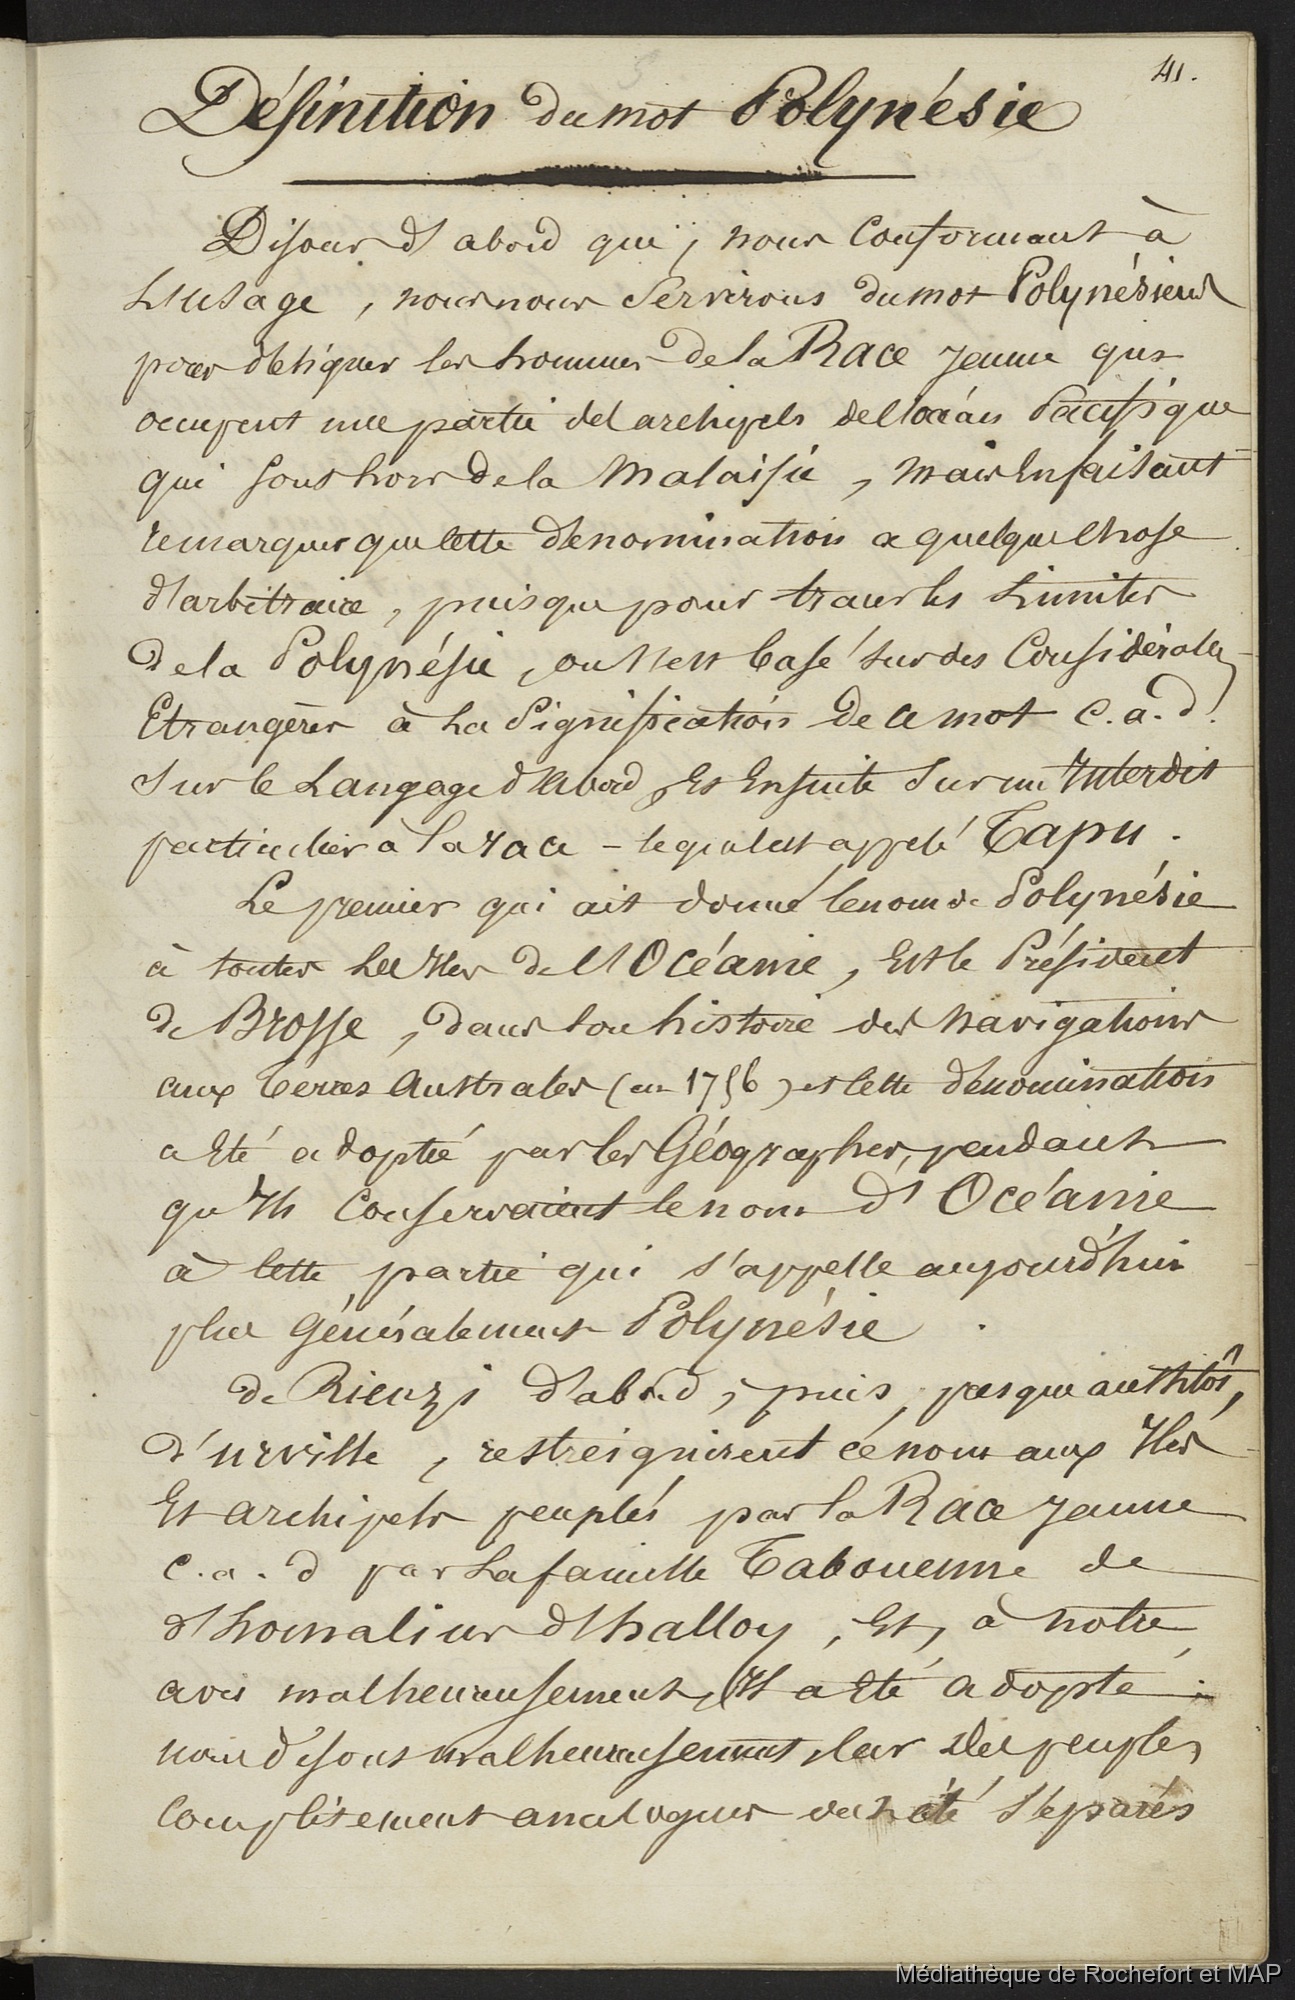 41.
Définition du mot Polynésie
Disons d'abord que, nous conformant à
L'usage, nous nous servirons du mot Polynésiens
pour désigner les hommes de la Race jaune qui
occupent une partie des archipels de l'océan Pacifique
qui sont hors de la Malaisie, mais En faisant
remarquer que cette dénomination a quelque chose
d'arbitraire, puisque pour tracer les Limites
de la Polynésie, on s'est basé sur des Considérations
Etrangères à La Signification de ce mot c.a.d.
sur le Langage d'abord, Et Ensuite sur un Interdit
particulier à la race - lequel est appelé Tapu.
Le premier qui ait donné le nom de Polynésie
à toutes Les Iles de l'Océanie, Est le Président
de Brosse, dans son histoire des navigations
aux terres australes (en 1756) et cette dénomination
a Eté adoptée par les Géographes, pendant
qu'Ils Conservaient le nom d'Océanie
à cette partie qui s'appelle aujourd'hui
plus Généralement Polynésie.
de Rienzi d'abord, puis, presque aussitôt,
d'urville, restreignirent ce nom aux Iles
Et archipels peuplés par la Race jaune
c.a.d par La famille Tabouenne de
d'homalius d'halloy, Et, à notre
avis malheureusement, Il a Eté adopté :
nous disons malheureusement, car des peuples
complètement analogues ont été séparés
Médiathèque de Rochefort et MAP